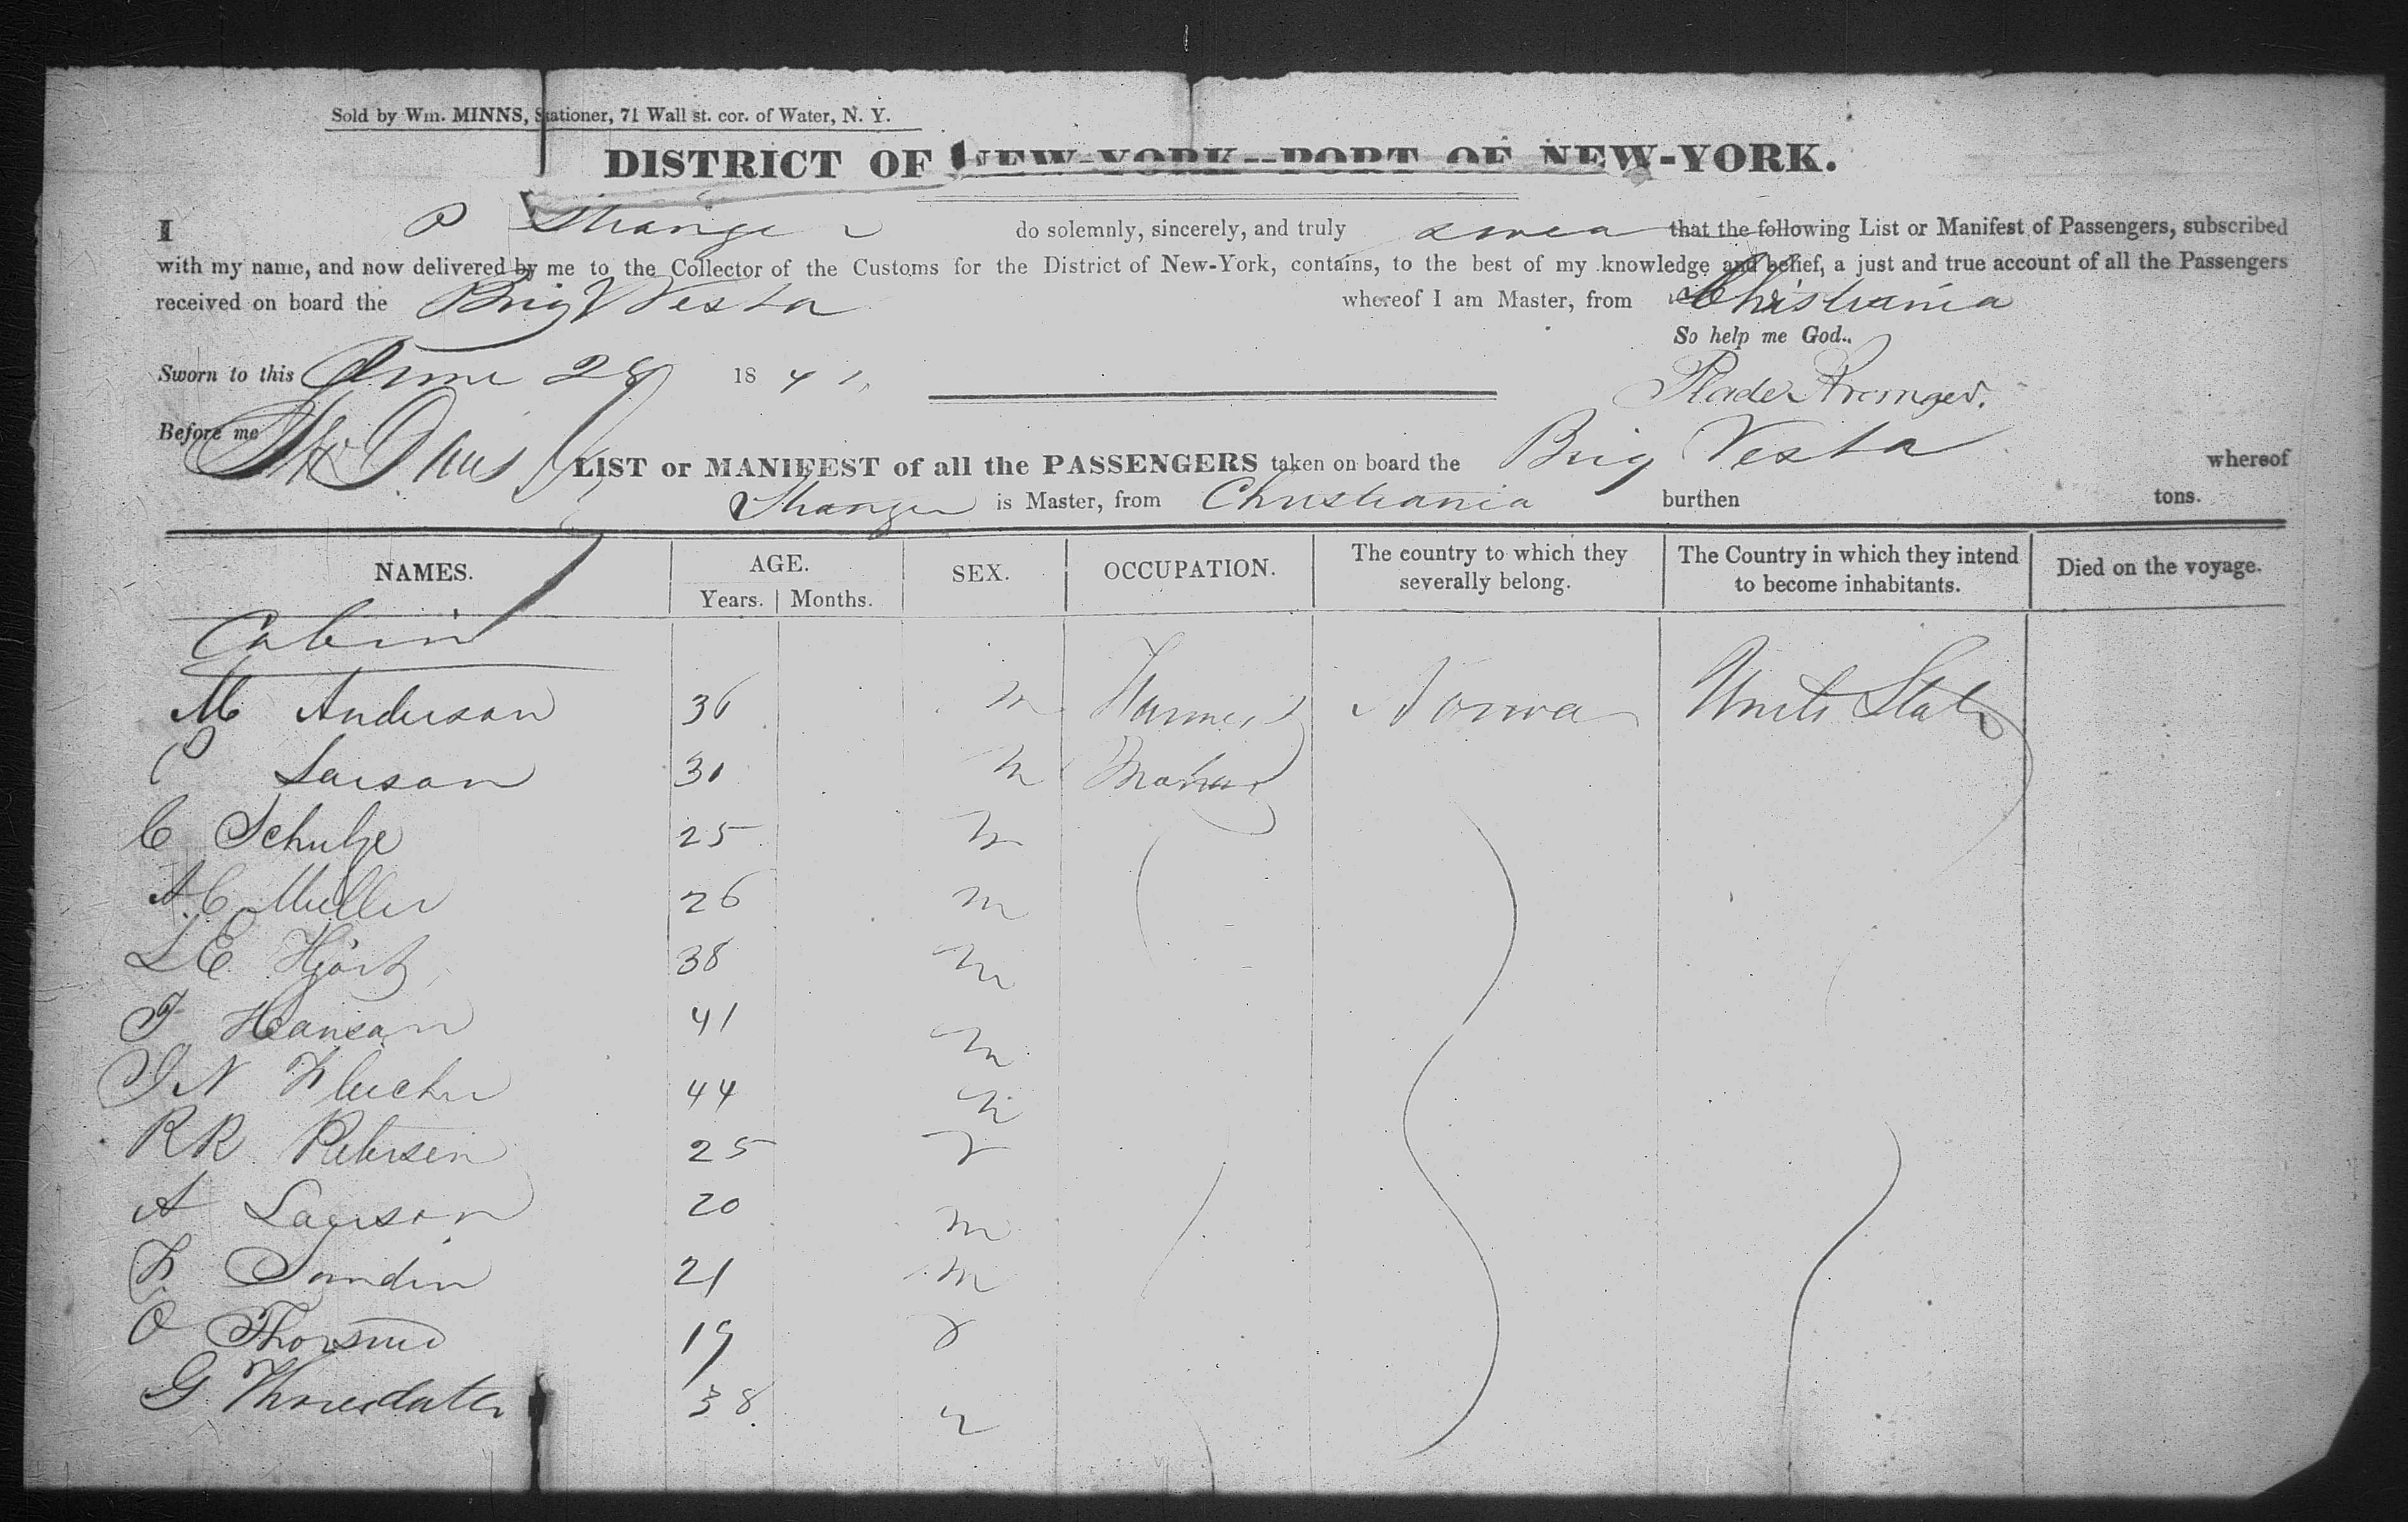 Sold by Wm. MINNS, Stationer, 71 Wall st. cor. of Water, N. Y.
DISTRICT OF NEW-YORK--PORT OF NEW-YORK.
I P Stranger do solemnly, sincerely, and truly swear that the following List or Manifest of Passengers, subscribed
with my name, and now delivered by me to the Collector of the Customs for the District of New-York, contains, to the best of my knowledge and belief, a just and true account of all the Passengers
received on board the Brig Vesta whereof I am Master, from Christiania
So help me God.
Sworn to this June 28 1841
Before me
LIST or MANIFEST of all the PASSENGERS taken on board the Brig Vesta whereof
Stranger is Master, from Christiania burthen tons.
NAMES. AGE. Years. Months. SEX. OCCUPATION. The country to which they severally belong. The Country in which they intend to become inhabitants. Died on the voyage.
Cabin
M Anderson 36 m Farmer Norway United States
P Larson 31 m
C Schulze 25 m
A C Muller 26 m
L E 38 m
F Hanson 41 m
J N 44 m
R R Petersen 25
A Lawson 20 m
21 m
O 19
G 38